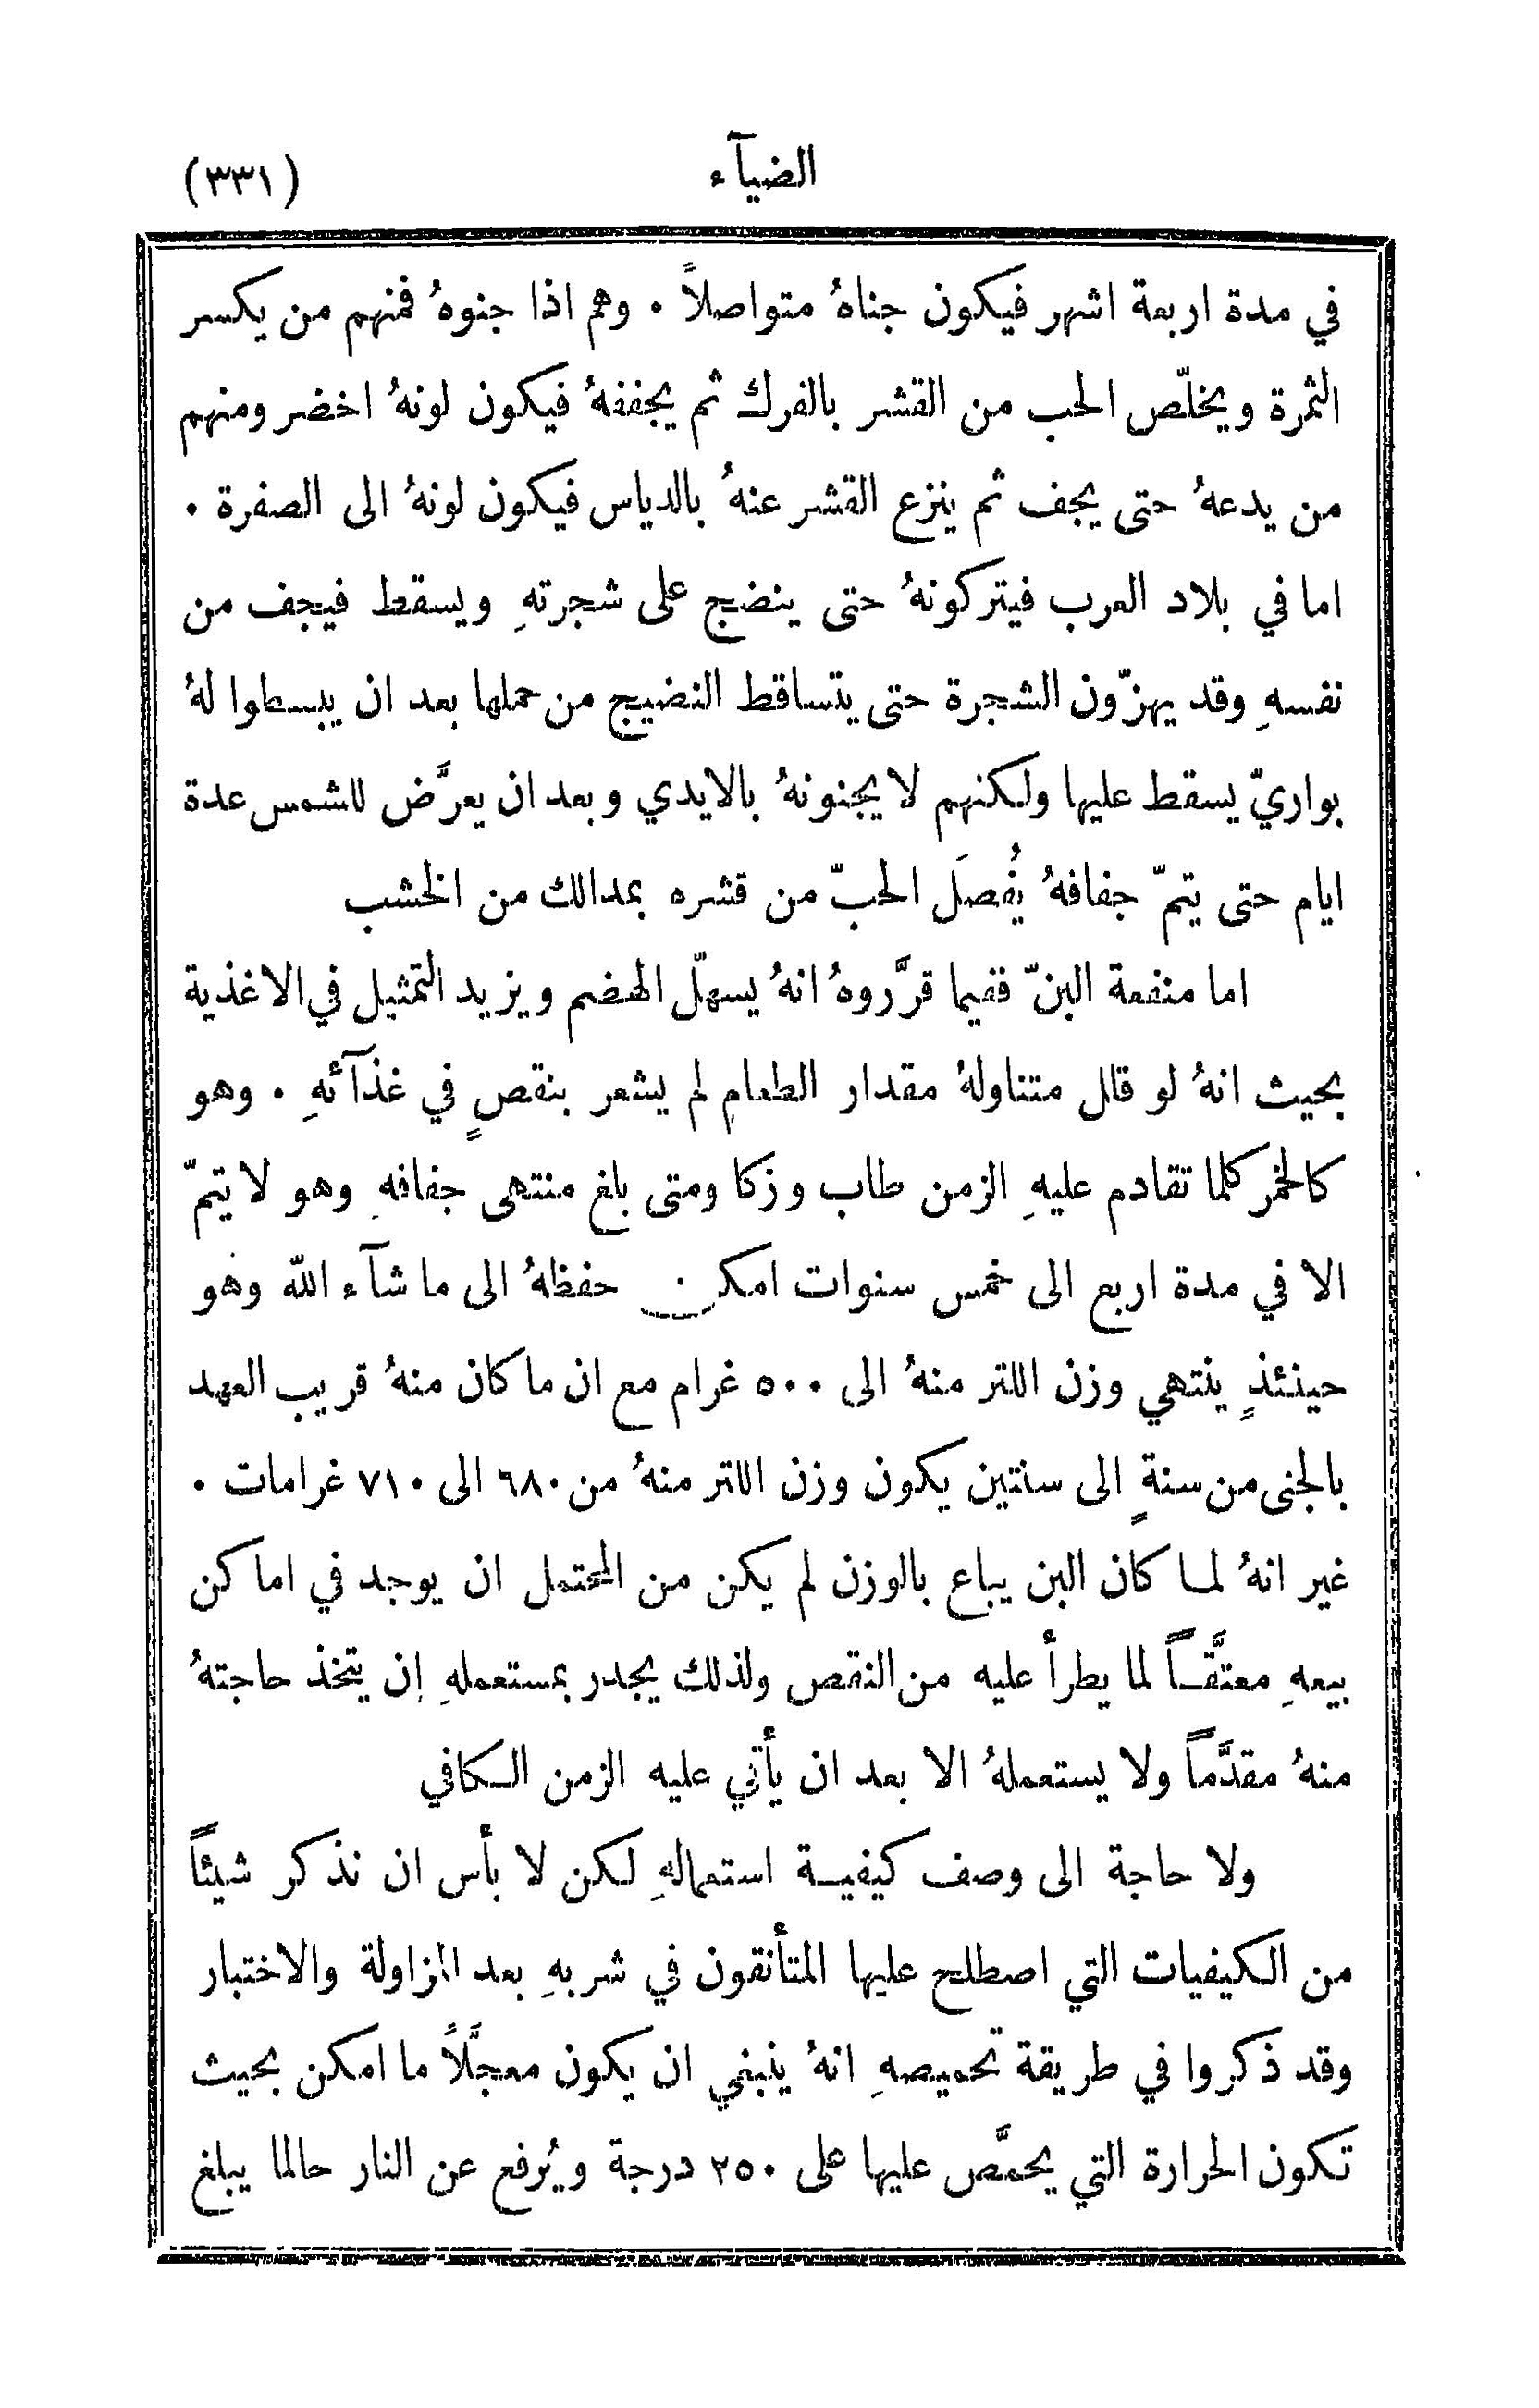 الضيآء
(٣٣١)
في مدة اربعة اشهر فيكون جناهُ متواصلاً ٠ وهم اذا جنوهُ فمنهم من يكسر
الثمرة ويخلّص الحب من القشر بالفرك ثم يجففهُ فيكون لونهُ اخضر ومنهم
من يدعهُ حتى يجف ثم ينزع القشر عنهُ بالدياس فيكون لونهُ الى الصفرة ٠
اما في بلاد العرب فيتركونهُ حتى ينضج على شجرتهِ ويسقط فيجف من
نفسهِ وقد يهزّون الشجرة حتى يتساقط النضيج من حملها بعد ان يبسطوا لهُ
بواريّ يسقط عليها ولكنهم لا يجنونهُ بالايدي وبعد ان يعرَّض للشمس عدة
ايام حتى يتمّ جفافهُ يُفصَل الحبّ من قشره بمدالك من الخشب
اما منفعة البنّ ففيما قرَّروهُ انهُ يسهلّ الهضم ويزيد التمثيل في الاغذية
بحيث انهُ لو قلل متناولهُ مقدار الطعام لم يشعر بنقصٍ في غذآئهِ ٠ وهو
كالخمر كلما تقادم عليهِ الزمن طاب وزكا ومتى بلغ منتهى جفافهِ وهو لا يتمّ
الا في مدة اربع الى خمس سنوات امكن حفظهُ الى ما شآء الله وهو
حينئذٍ ينتهي وزن اللتر منهُ الى ٥٠٠ غرام مع ان ما كان منهُ قريب العهد
بالجنى من سنةٍ الى سنتين يكون وزن اللتر منهُ من ٦٨٠ الى ٧١٠ غرامات ٠
غير انهُ لما كان البن يباع بالوزن لم يكن من المحتمل ان يوجد في اماكن
بيعهِ معتَّقاً لما يطرأ عليه من النقص ولذلك يجدر بمستعملهِ إن يتخذ حاجتهُ
منهُ مقدَّماً ولا يستعملهُ الا بعد ان يأتي عليه الزمن الكافي
ولا حاجة الى وصف كيفية استعمالهِ لكن لا بأس ان نذكر شيئاً
من الكيفيات التي اصطلح عليها المتأنقون في شربهِ بعد المزاولة والاختبار
وقد ذكروا في طريقة تحميصهِ انهُ ينبغي ان يكون معجَّلاً ما امكن بحيث
تكون الحرارة التي يحمَّص عليها على ٢٥٠ درجة ويُرفع عن النار حالما يبلغ